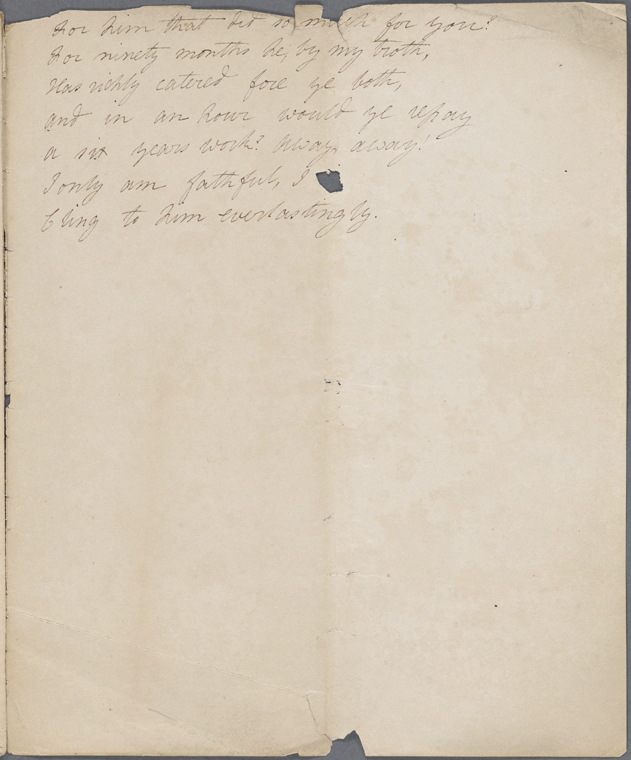 For him that did so much for you?
For ninety months he, by my troth,
Has richly catered fore ye both,
And in an hour would ye repay
a six years work? Away, away!
I only am faithful, I
Cling to him everlastingly.